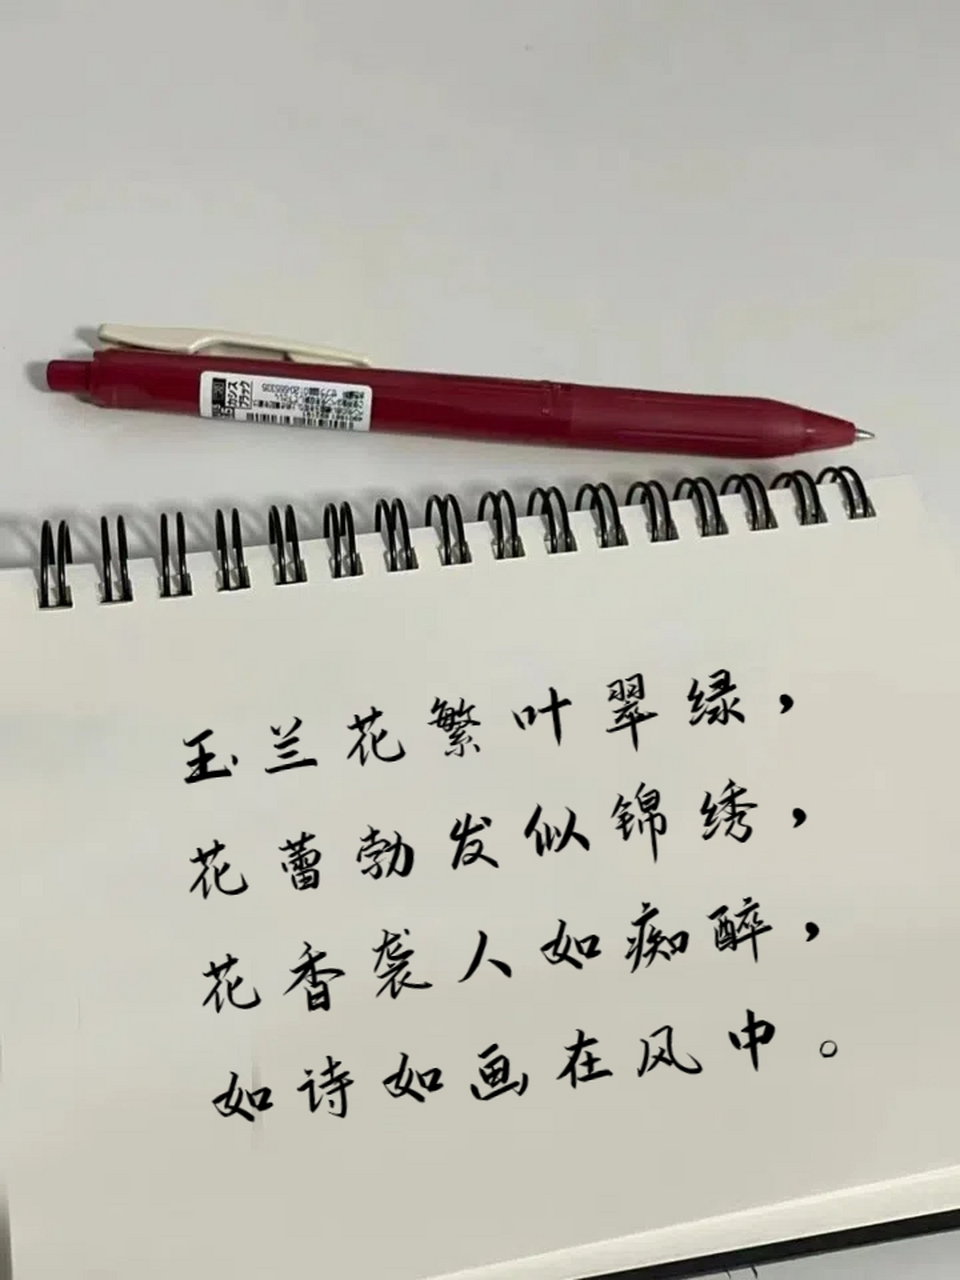 カシス
ブラック
玉兰花繁叶翠绿，
花蕾勃发似锦绣，
花香袭人如痴醉，
如诗如画在风中。